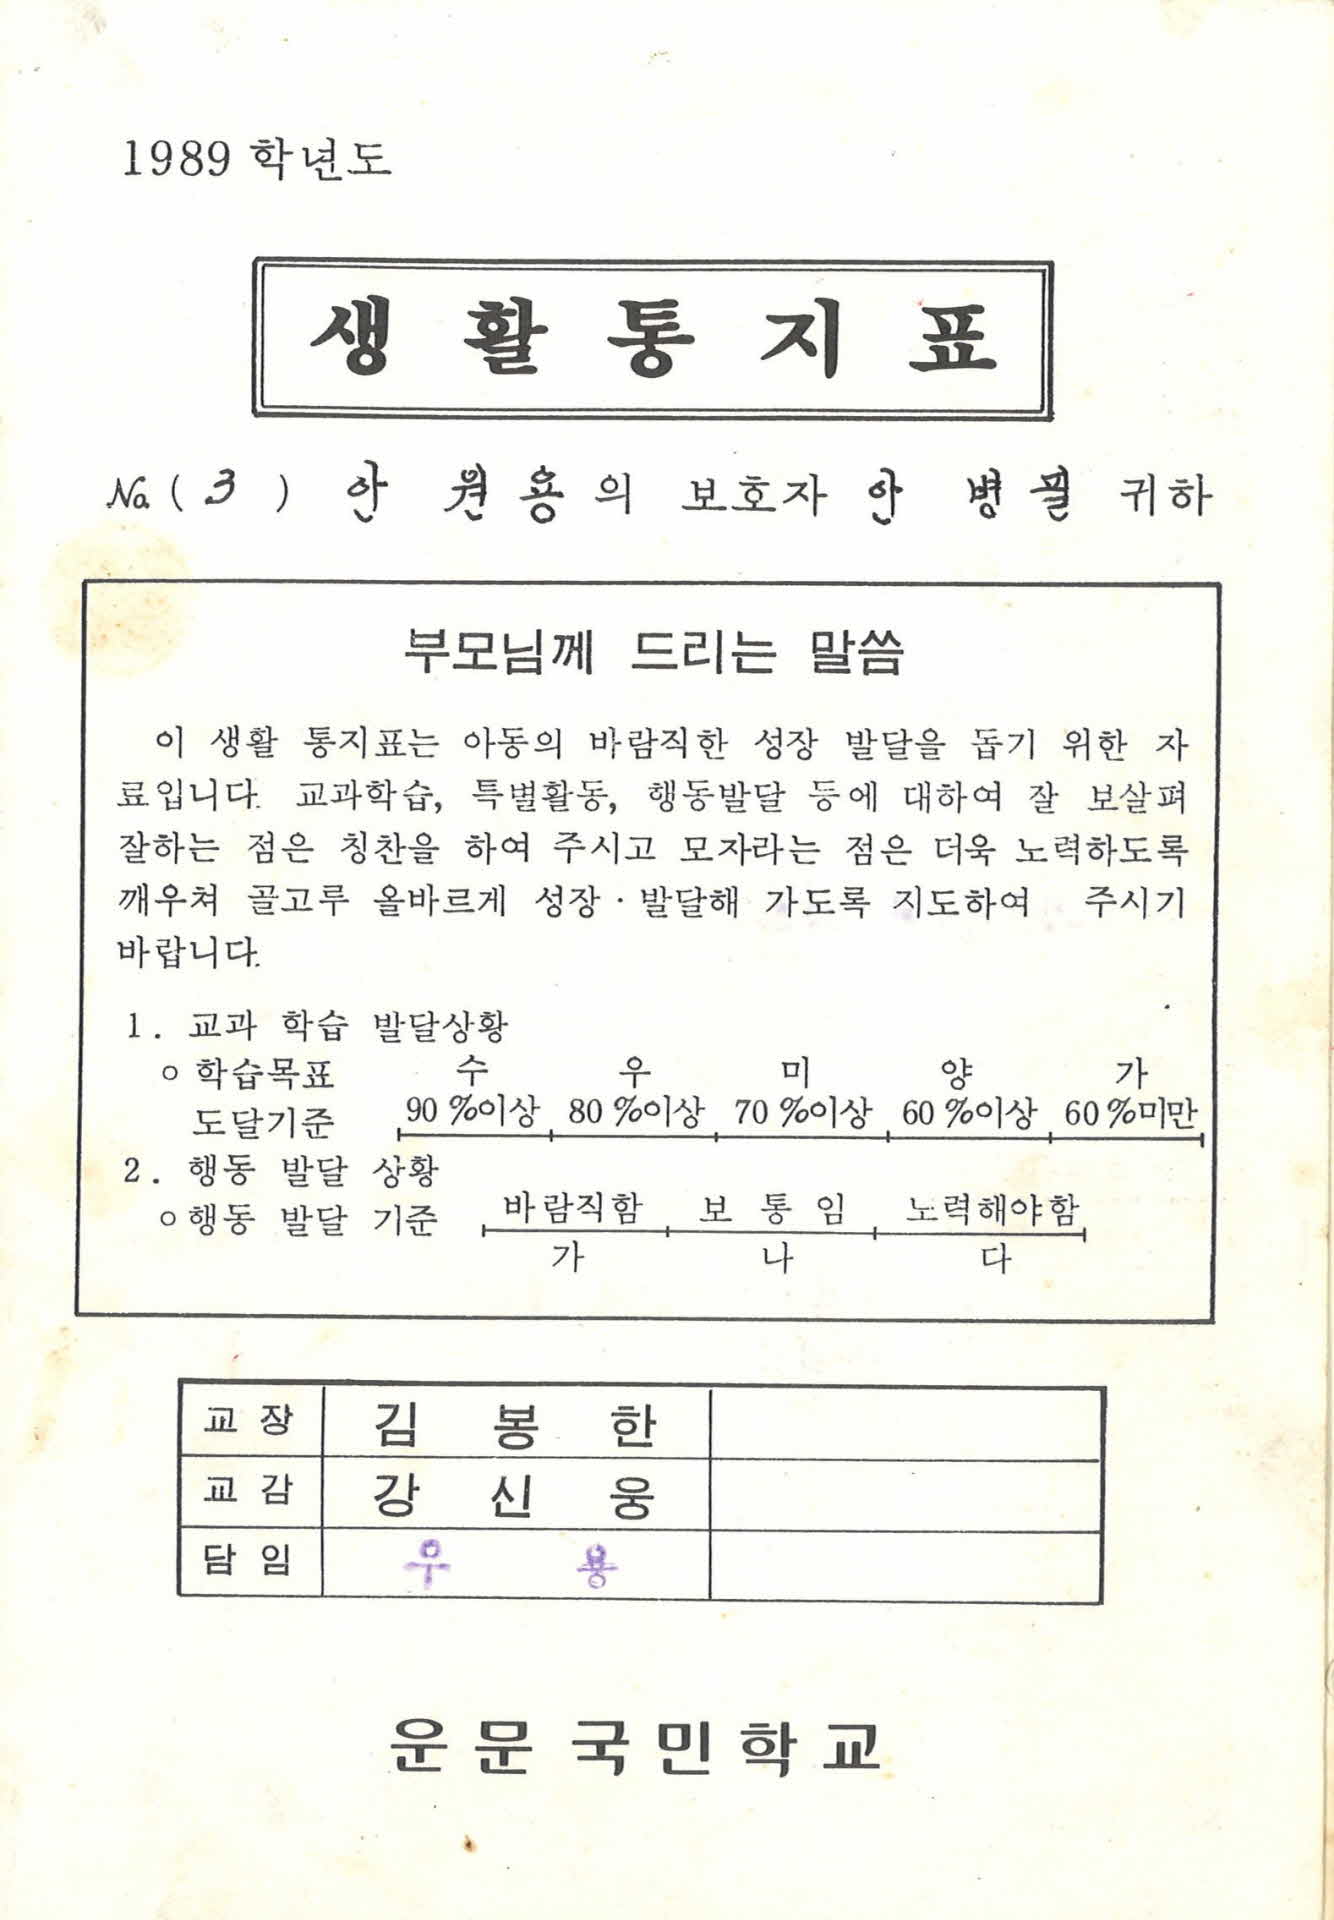 1989 학년도
생 활 통 지 표
No. ( 3 ) 안 원 용 의 보호자 안 병 필 귀하
부모님께 드리는 말씀
이 생활 통지표는 아동의 바람직한 성장 발달을 돕기 위한 자
료입니다. 교과학습, 특별활동, 행동발달 등에 대하여 잘 보살펴
잘하는 점은 칭찬을 하여 주시고 모자라는 점은 더욱 노력하도록
깨우쳐 골고루 올바르게 성장·발달해 가도록 지도하여 주시기
바랍니다.
1. 교과 학습 발달상황
○ 학습목표 수 우 미 양 가
도달기준 90 %이상 80 %이상 70 %이상 60 %이상 60 %미만
2. 행동 발달 상황
○ 행동 발달 기준 바람직함 보 통 임 노력해야함
가 나 다
교 장 김 봉 한
교 감 강 신 웅
담 임 우 용
운 문 국 민 학 교